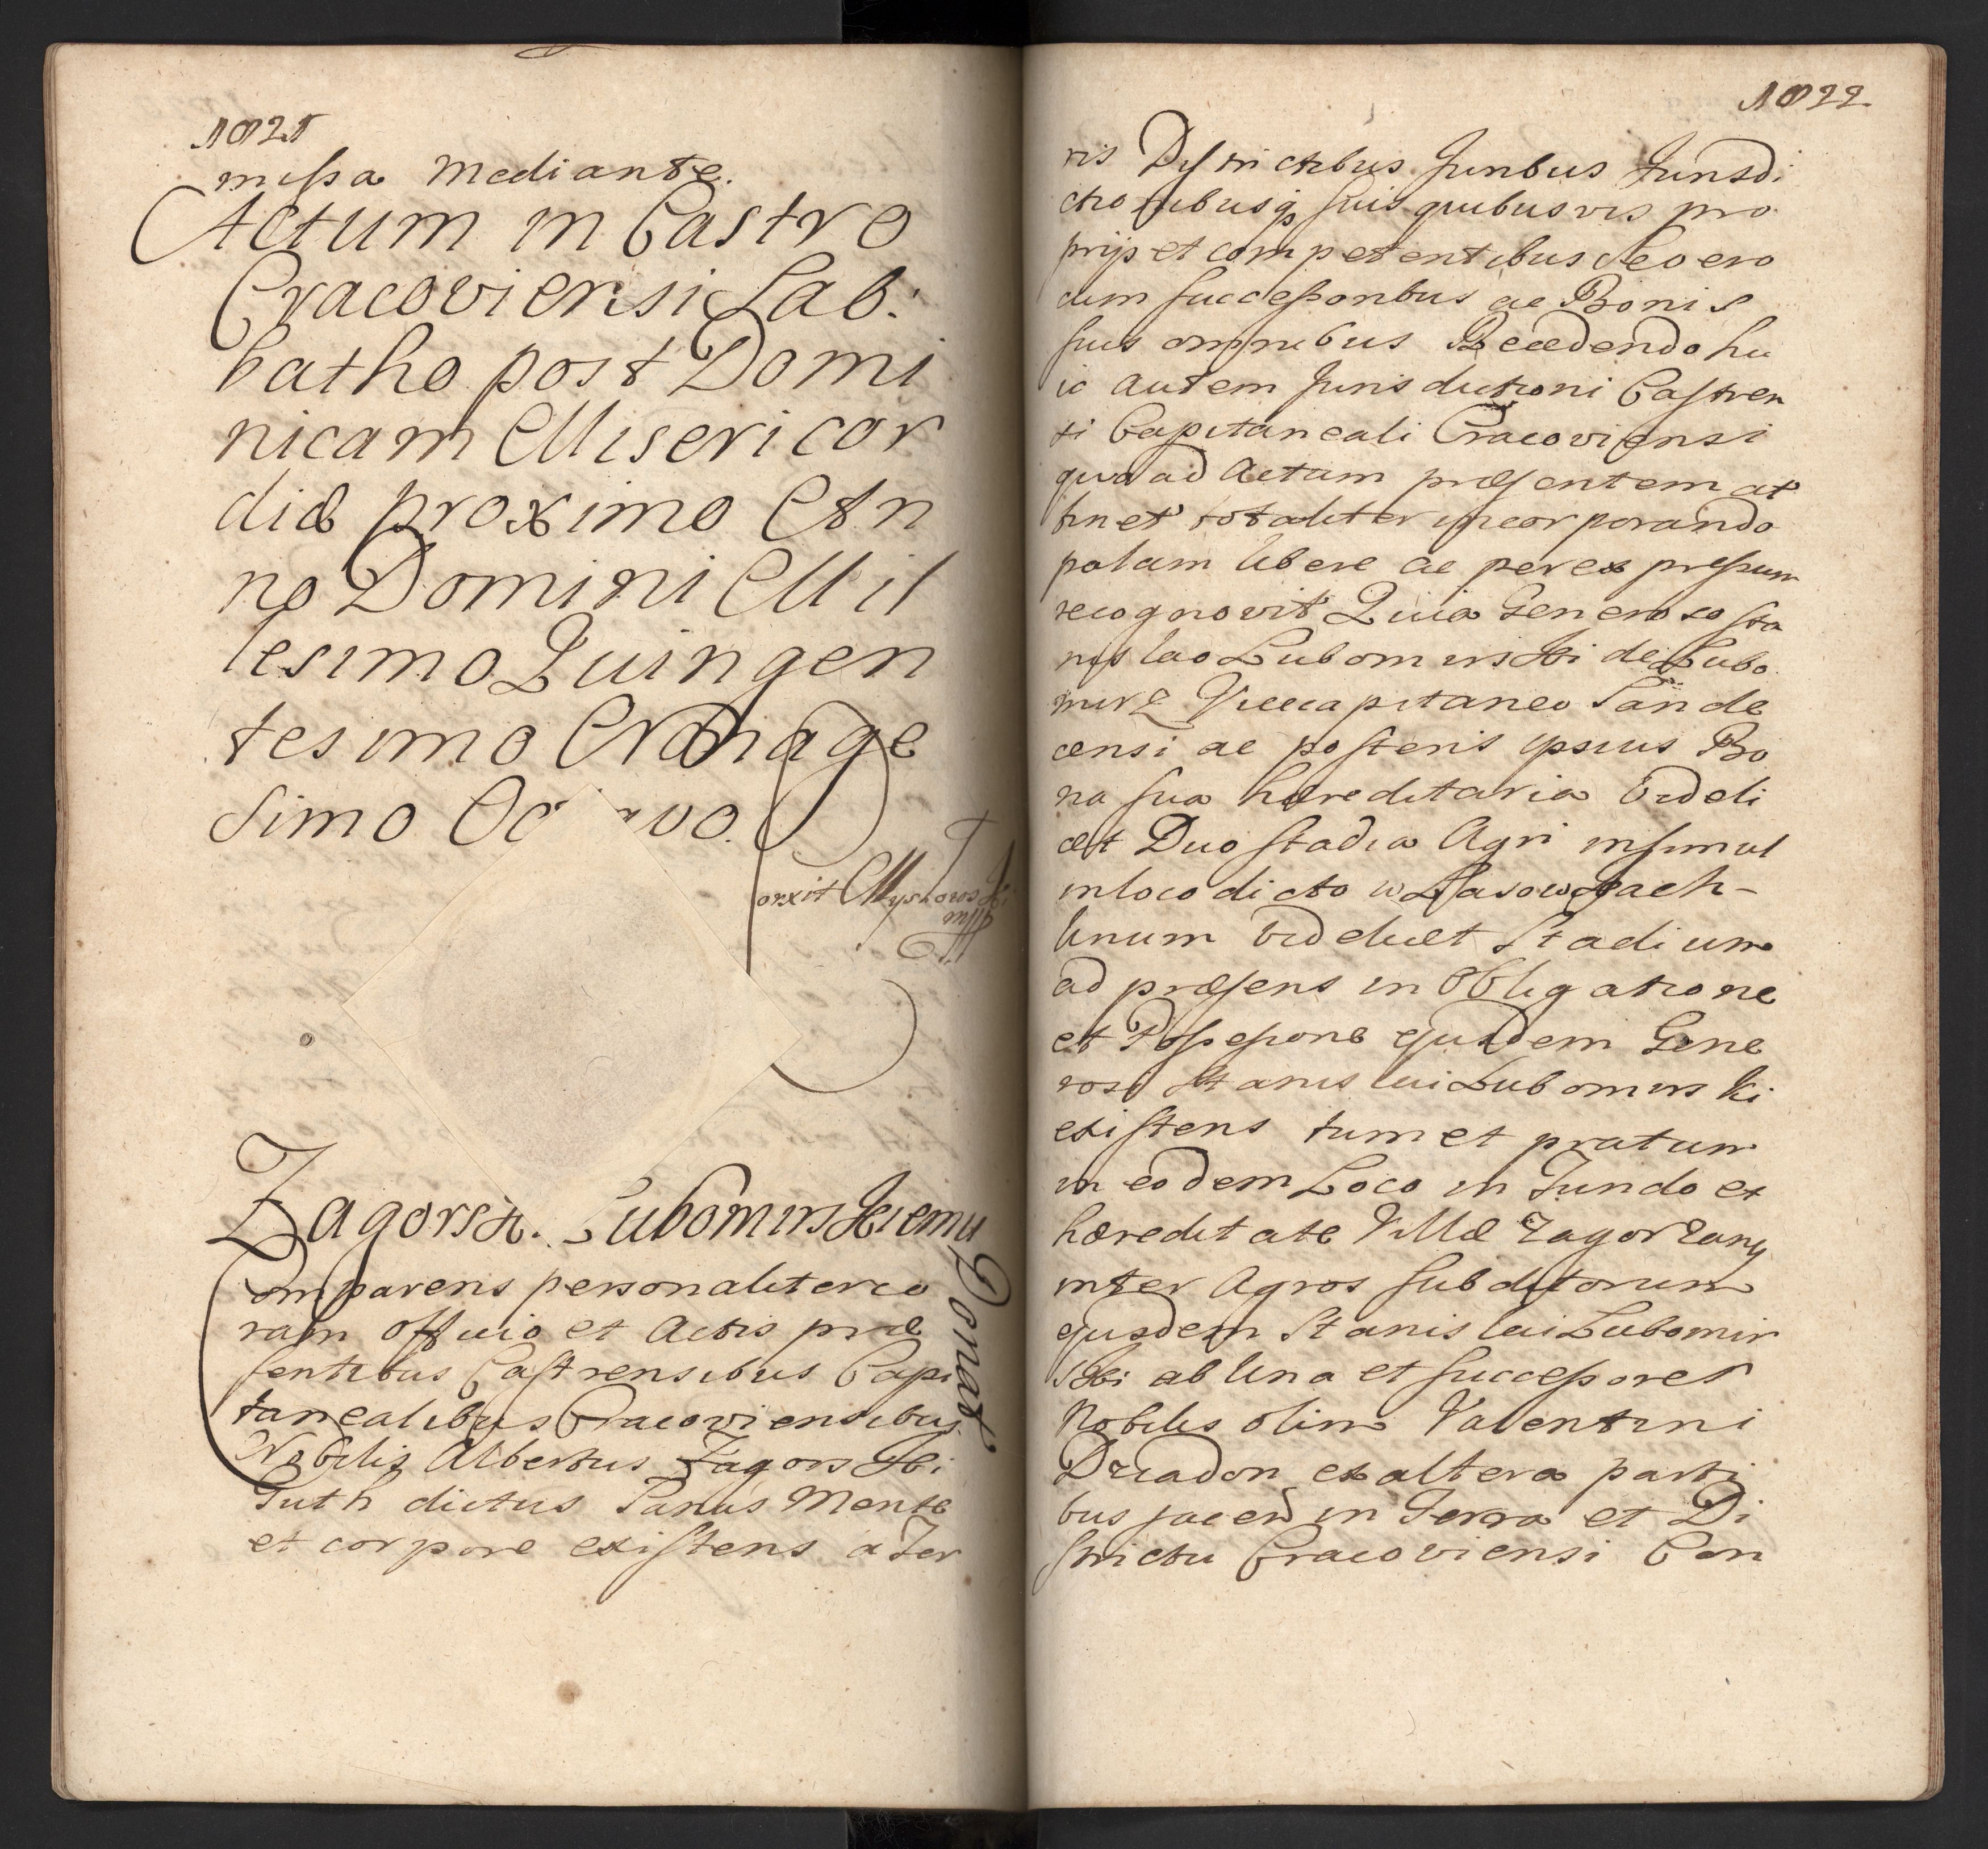 1021
missa mediante.
Actum in Castro
Cracoviensi Sab.
batho post Domi
nicam Misericor
diæ proximo An
no Domini Mil
lesimo Quingen
tesimo Nonage
simo Oc avo.
orxit Myszkowski
mpp
Zagorski. Lubomirskiemu
Donat
Comparens personaliter co
ram officio et Actis præ
sentibus Castrensibus Capi
tanealibus Cracoviensibus
Nobilis Albertus Zagorski
Guth dictus Sanus Mente
et corpore existens a Ter
1022
ris Districtibus Juribus Jurisdi
ctionibusq suis quibusvis pro
prijs et competentibus Seo ero
dum successoribus ac Bonis
suis omnibus Recedendo hu
ic autem Jurisdictioni Castren
si Capitaneali Cracoviensi
quo ad Actum præsentem at
tinet totaliter incorporando
palam libere ac per expressum
recognovit Quia Generoso Sta
nislao Lubomirski de Lubo
mirz Vicecapitaneo Sande
censi ac posteris ipsius Bo
na sua hæreditaria Videli
cet Duo stadia Agri insimul
in loco dicto w Lasowkach
Unum Videlicet Stadium
ad præsens in Obligatione
et Possessione ejusdem Gene
rosi Stanislai Lubomirski
existens tum et pratum
in eodem Loco in Fundo et
hæreditate Villæ Zagorzany
inter Agros subditorum
ejusdem Stanislai Lubomir
ski ab Una et successores
Nobilis olim Valentini
Dziadon ex altera parti
bus jacen in Terra et Di
strictu Cracoviensi Con